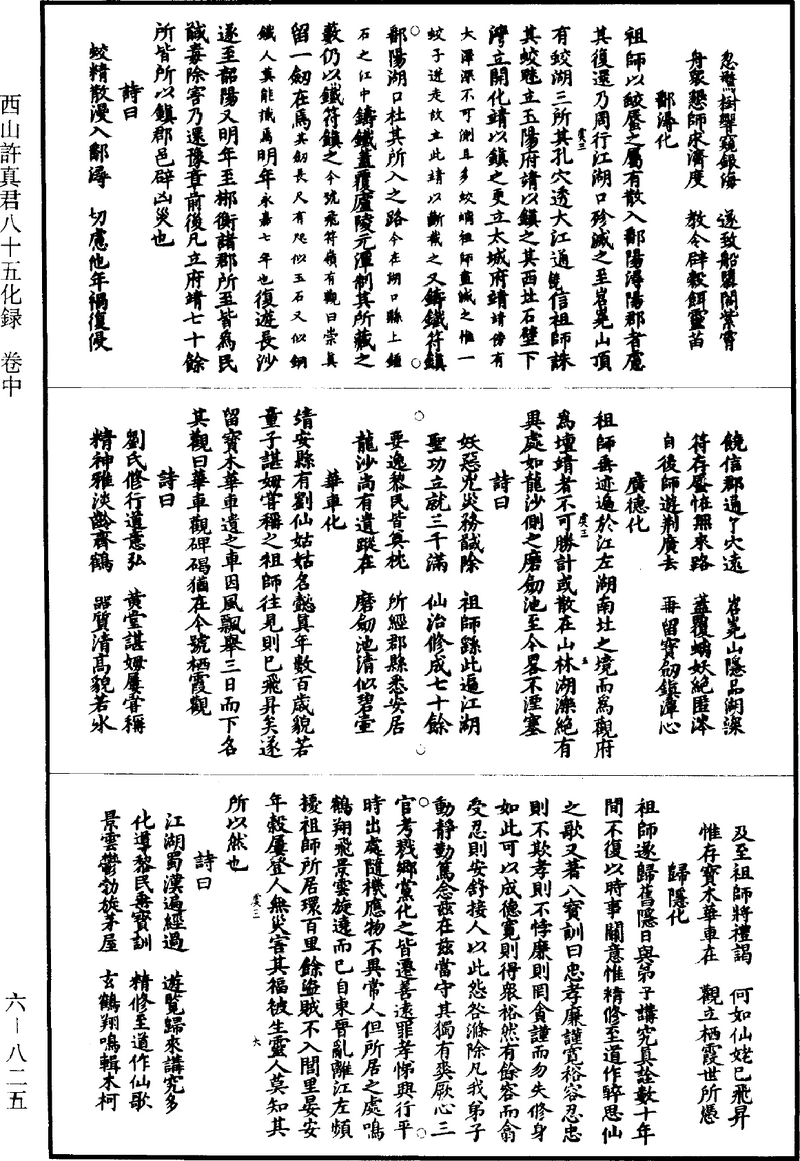 西山許真君八十五化録　卷中
六—八二五
忽驚樹響窺銀海　遂致船閣紫霄
舟衆懇師求濟度　教令辟穀餌靈苗
鄱潯化
祖師以蛟蜃之屬有散入鄱陽潯陽郡者慮
其復還乃周行江湖口殄滅之至岧嶤山頂
有蛟湖三所其孔穴透大江通饒信祖師誅
其蛟魅立玉陽府靖以鎮之其西北石壁下
灣立開化靖以鎮之更立太城府靖靖傍有
大澤深不可測且多蛟螭祖師盡誠之惟一
蛟子迸走故立此靖以斷截之又鑄鐵符鎮
鄱陽湖口杜其所入之路今在湖口縣上鍾
石之江中鑄鐵蓋覆廬陵元潭制其所藏之
藪仍以鐵符鎮之今號飛符嶺有觀曰崇真
留一劒在焉其劒長尺有咫似玉石又似銅
鐵人莫能識焉明年永嘉七年也復遊長沙
遂至韶陽又明年至郴衡諸郡所至皆爲民
誠毒除害乃還豫章前後凡立府靖七十餘
所皆所以鎮郡邑辟凶災也
詩曰
蛟精散漫入鄱潯　切慮他年禍復侵
饒信郡通穴遠　岧嶤山隱品湖深
符存蜃怪無來路　蓋覆螭妖絶匿涔
自後師遊荆廣去　再留寶劒鎮潭心
廣德化
祖師垂迹遍於江左湖南北之境而爲觀府
爲壇靖者不可勝計或散在山林湖濼絶有
異處如龍沙側之磨劒池至今畧不湮塞
詩曰
妖惡兇災務誠除　祖師繇此遍江湖
聖功立就三千滿　仙治修成七十餘
要逸黎民皆奠枕　所經郡縣悉安居
龍沙尚有遺蹤在　磨劒池清似碧壺
華車化
靖安縣有劉仙姑姑名懿真年數百歲貌若
童子諶姆嘗稱之祖師往見則已飛昇矣遂
留寶木華車遺之車因風飄舉三日而下名
其觀曰華車觀碑碣猶在今號栖霞觀
詩曰
劉氏修行道意弘　黄堂諶姆屢嘗稱
精神雅淡齡齊鶴　器質清高貌若氷
及至祖師將禮謁　何如仙姥已飛昇
惟存寶木華車在　觀立栖霞世所慿
歸隱化
祖師遂歸舊隱日與弟子講究真詮數十年
間不復以時事關意惟精修至道作醉思仙
之歌又著八寶訓曰忠孝廉謹寬裕容忍忠
則不欺孝則不悖廉則罔貪謹而勿失修身
如此可以成德寬則得衆裕然有餘容而翕
受忍則安舒接人以此怨咎滌除凡我弟子
動靜勤篤念兹在兹當守其獨有爽厥心三
官考戮鄉黨化之皆遷善遠罪孝悌興行平
時出處隨機應物不異常人但所居之處鳴
鶴翔飛景雲旋遶而已自東晉亂離江左頻
擾祖師所居環百里餘盜賊不入閭里晏安
年穀屢登人無災害其福被生靈人莫知其
所以然也
詩曰
江湖蜀漢遍經過　遊覧歸來講究多
化導黎民垂寶訓　精修至道作仙歌
景雲鬱勃旋茅屋　玄鶴翔鳴輯木柯